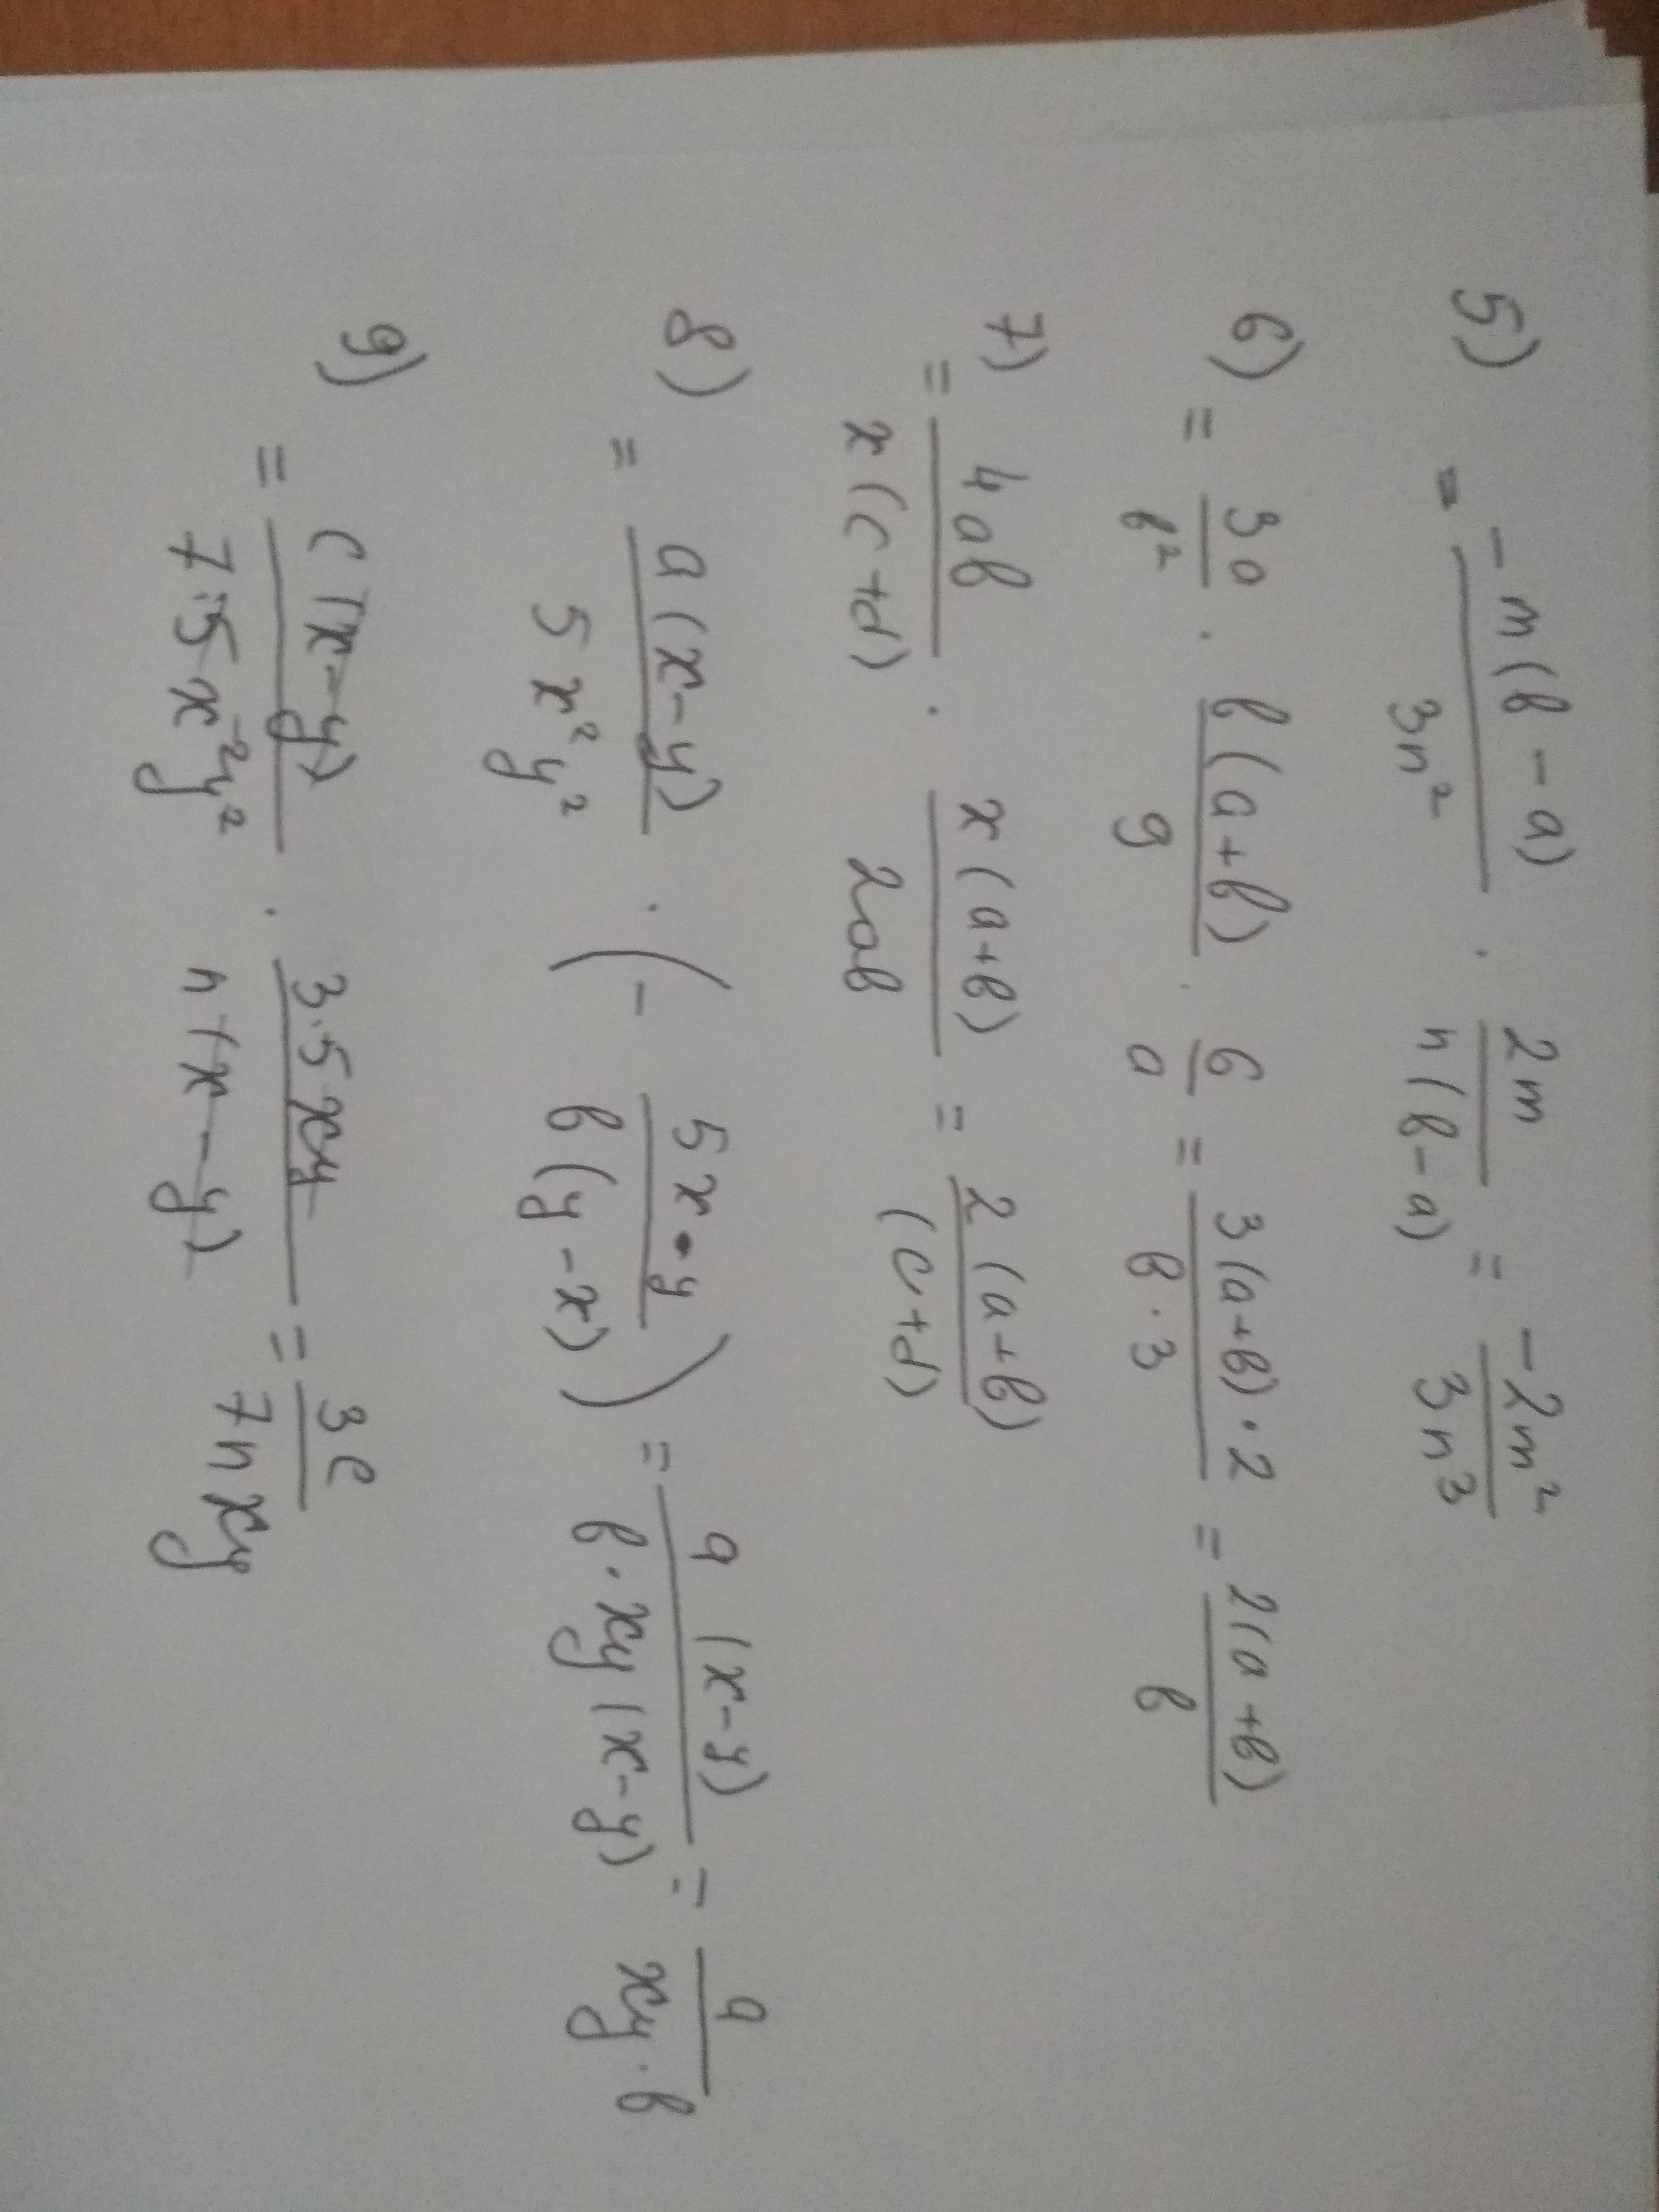 5) = -m(b-a)/3n² · 2m/n(b-a) = -2m²/3n³
6) = 3a/b² · b(a+b)/9 · 6/a = 3(a+b)·2/b·3 = 2(a+b)/b
7) = 4ab/x(c+d) · x(a+b)/2ab = 2(a+b)/(c+d)
8) = a(x-y)/5x²y² · (- 5x·y/b(y-x)) = a(x-y)/b·xy(x-y) = a/xy·b
9) = c(x-y)/7·5x²y² · 3·5xy/n(x-y) = 3c/7nxy